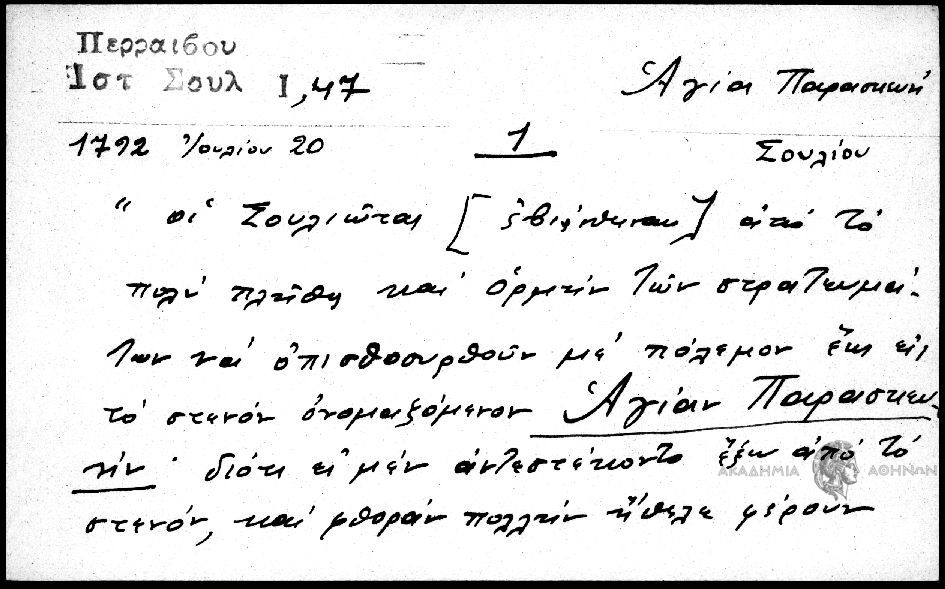 Περραιβου
Ιστ Σουλ Ι, 47
Ἁγία Παρασκευή
1792 Ἰουλίου 20
1
Σουλίου
" οἱ Σουλιῶται [ἐβιάσθησαν] ἀπό τό
πολύ πλῆθος καί ὁρμήν τῶν στρατευμά-
των νά ὀπισθοσυρθοῦν μέ πόλεμον ἕως εἰς
τό στενόν ὀνομαζόμενον Ἁγίαν Παρασκευ-
ήν διότι εἰ μέν ἀντεστέκοντο ἔξω ἀπό τό
στενόν, καί φθοράν πολλήν ἤθελε φέρουν
ΑΚΑΔΗΜΙΑ ΑΘΗΝΩΝ